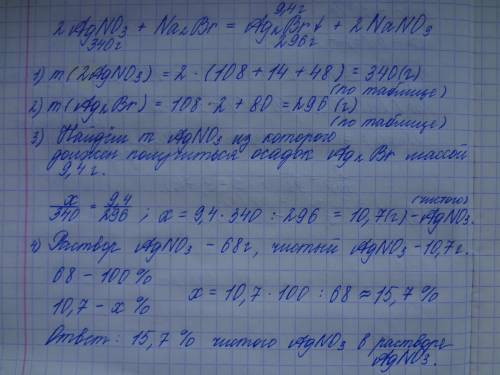 9,4г
2AgNO3 + Na2Br = Ag2Br↓ + 2NaNO3
340г 296г
1) m(2AgNO3) = 2·(108+14+48) = 340(г)
(по таблице)
2) m(Ag2Br) = 108·2 + 80 = 296(г)
(по таблице)
3) Найдём m AgNO3 из которого
должен получиться осадок Ag2Br массой
9,4г.
x/340 = 9,4/296 ; x = 9,4·340 : 296 = 10,7(г) - AgNO3.
(чистого)
4) Раствор AgNO3 - 68г, чистый AgNO3 - 10,7г.
68 - 100%
10,7 - x%
x = 10,7·100 : 68 ≈ 15,7%
Ответ: 15,7% чистого AgNO3 в растворе
AgNO3.